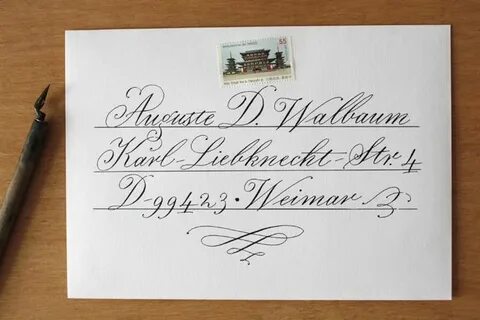 55
Auguste D. Walbaum
Karl-Liebknecht-Str. 4
D-99423 • Weimar